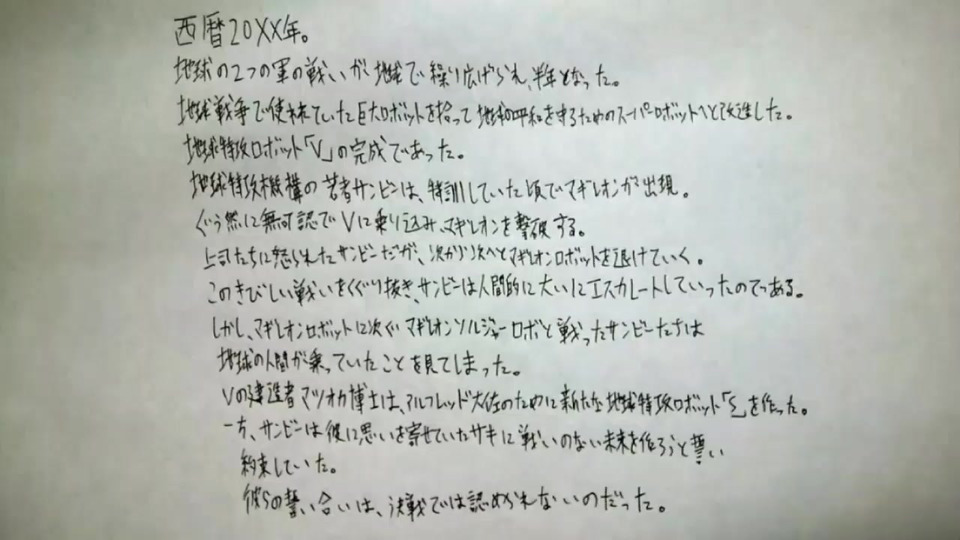 西暦20XX年。
地球の2つの軍の戦いが地球で繰り広げられ、半年となった。
地球戦争で使われていた巨大ロボットを拾って地球の平和を守るためのスーパーロボットへと改造した。
地球特攻ロボット「V」の完成であった。
地球特攻機構の若者サンビーは、特訓していた頃でマギレオンが出現。
ぐう然に無可認でVに乗り込み、マギレオンを撃破する。
上司たちに怒られたサンビーだが、次から次へとマギレオンロボットを退けていく。
このきびしい戦いをくぐり抜き、サンビーは人間的に大いにエスカレートしていったのである。
しかし、マギレオンロボットに次ぐマギレオンソルジャーロボと戦ったサンビーたちは
地球の人間が乗っていたことを見てしまった。
Vの建造者マツオカ博士は、アルフレッド大佐のために新たな地球特攻ロボット「Σ」を作った。
一方、サンビーは彼に思いを寄せていたサキに戦いのない未来を作ろうと誓い
約束していた。
彼らの誓い合いは、決戦では認められないのだった。